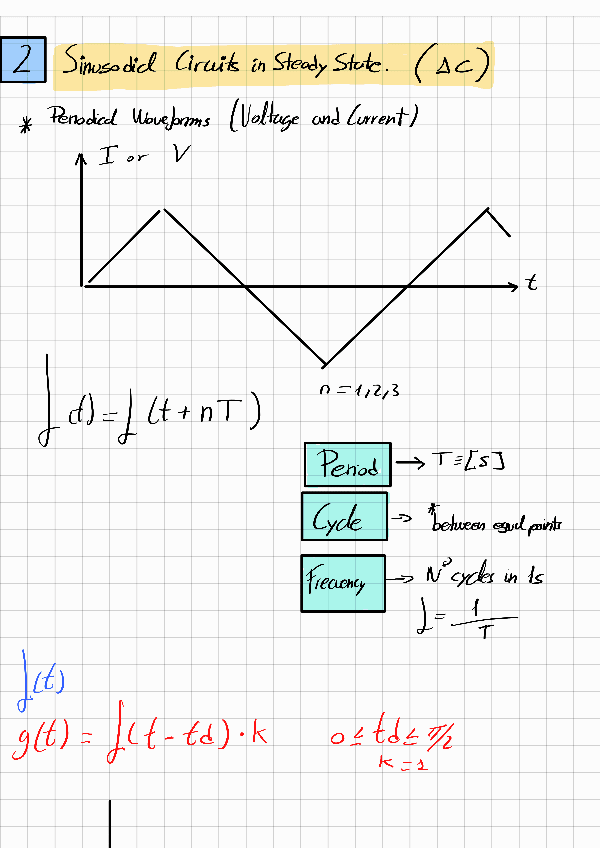 2 Sinusodial Circuits in Steady State. (AC)
* Periodical Waveforms (Voltage and Current)
I or V
t
n = 1,2,3
f(t) = f(t + nT)
Period → T ≡ [s]
Cycle → * between equal points
Frecuency → Nº cycles in 1s
f = 1/T
f(t)
g(t) = f(t - td) · k 0 ≤ td ≤ π/2
k = 1